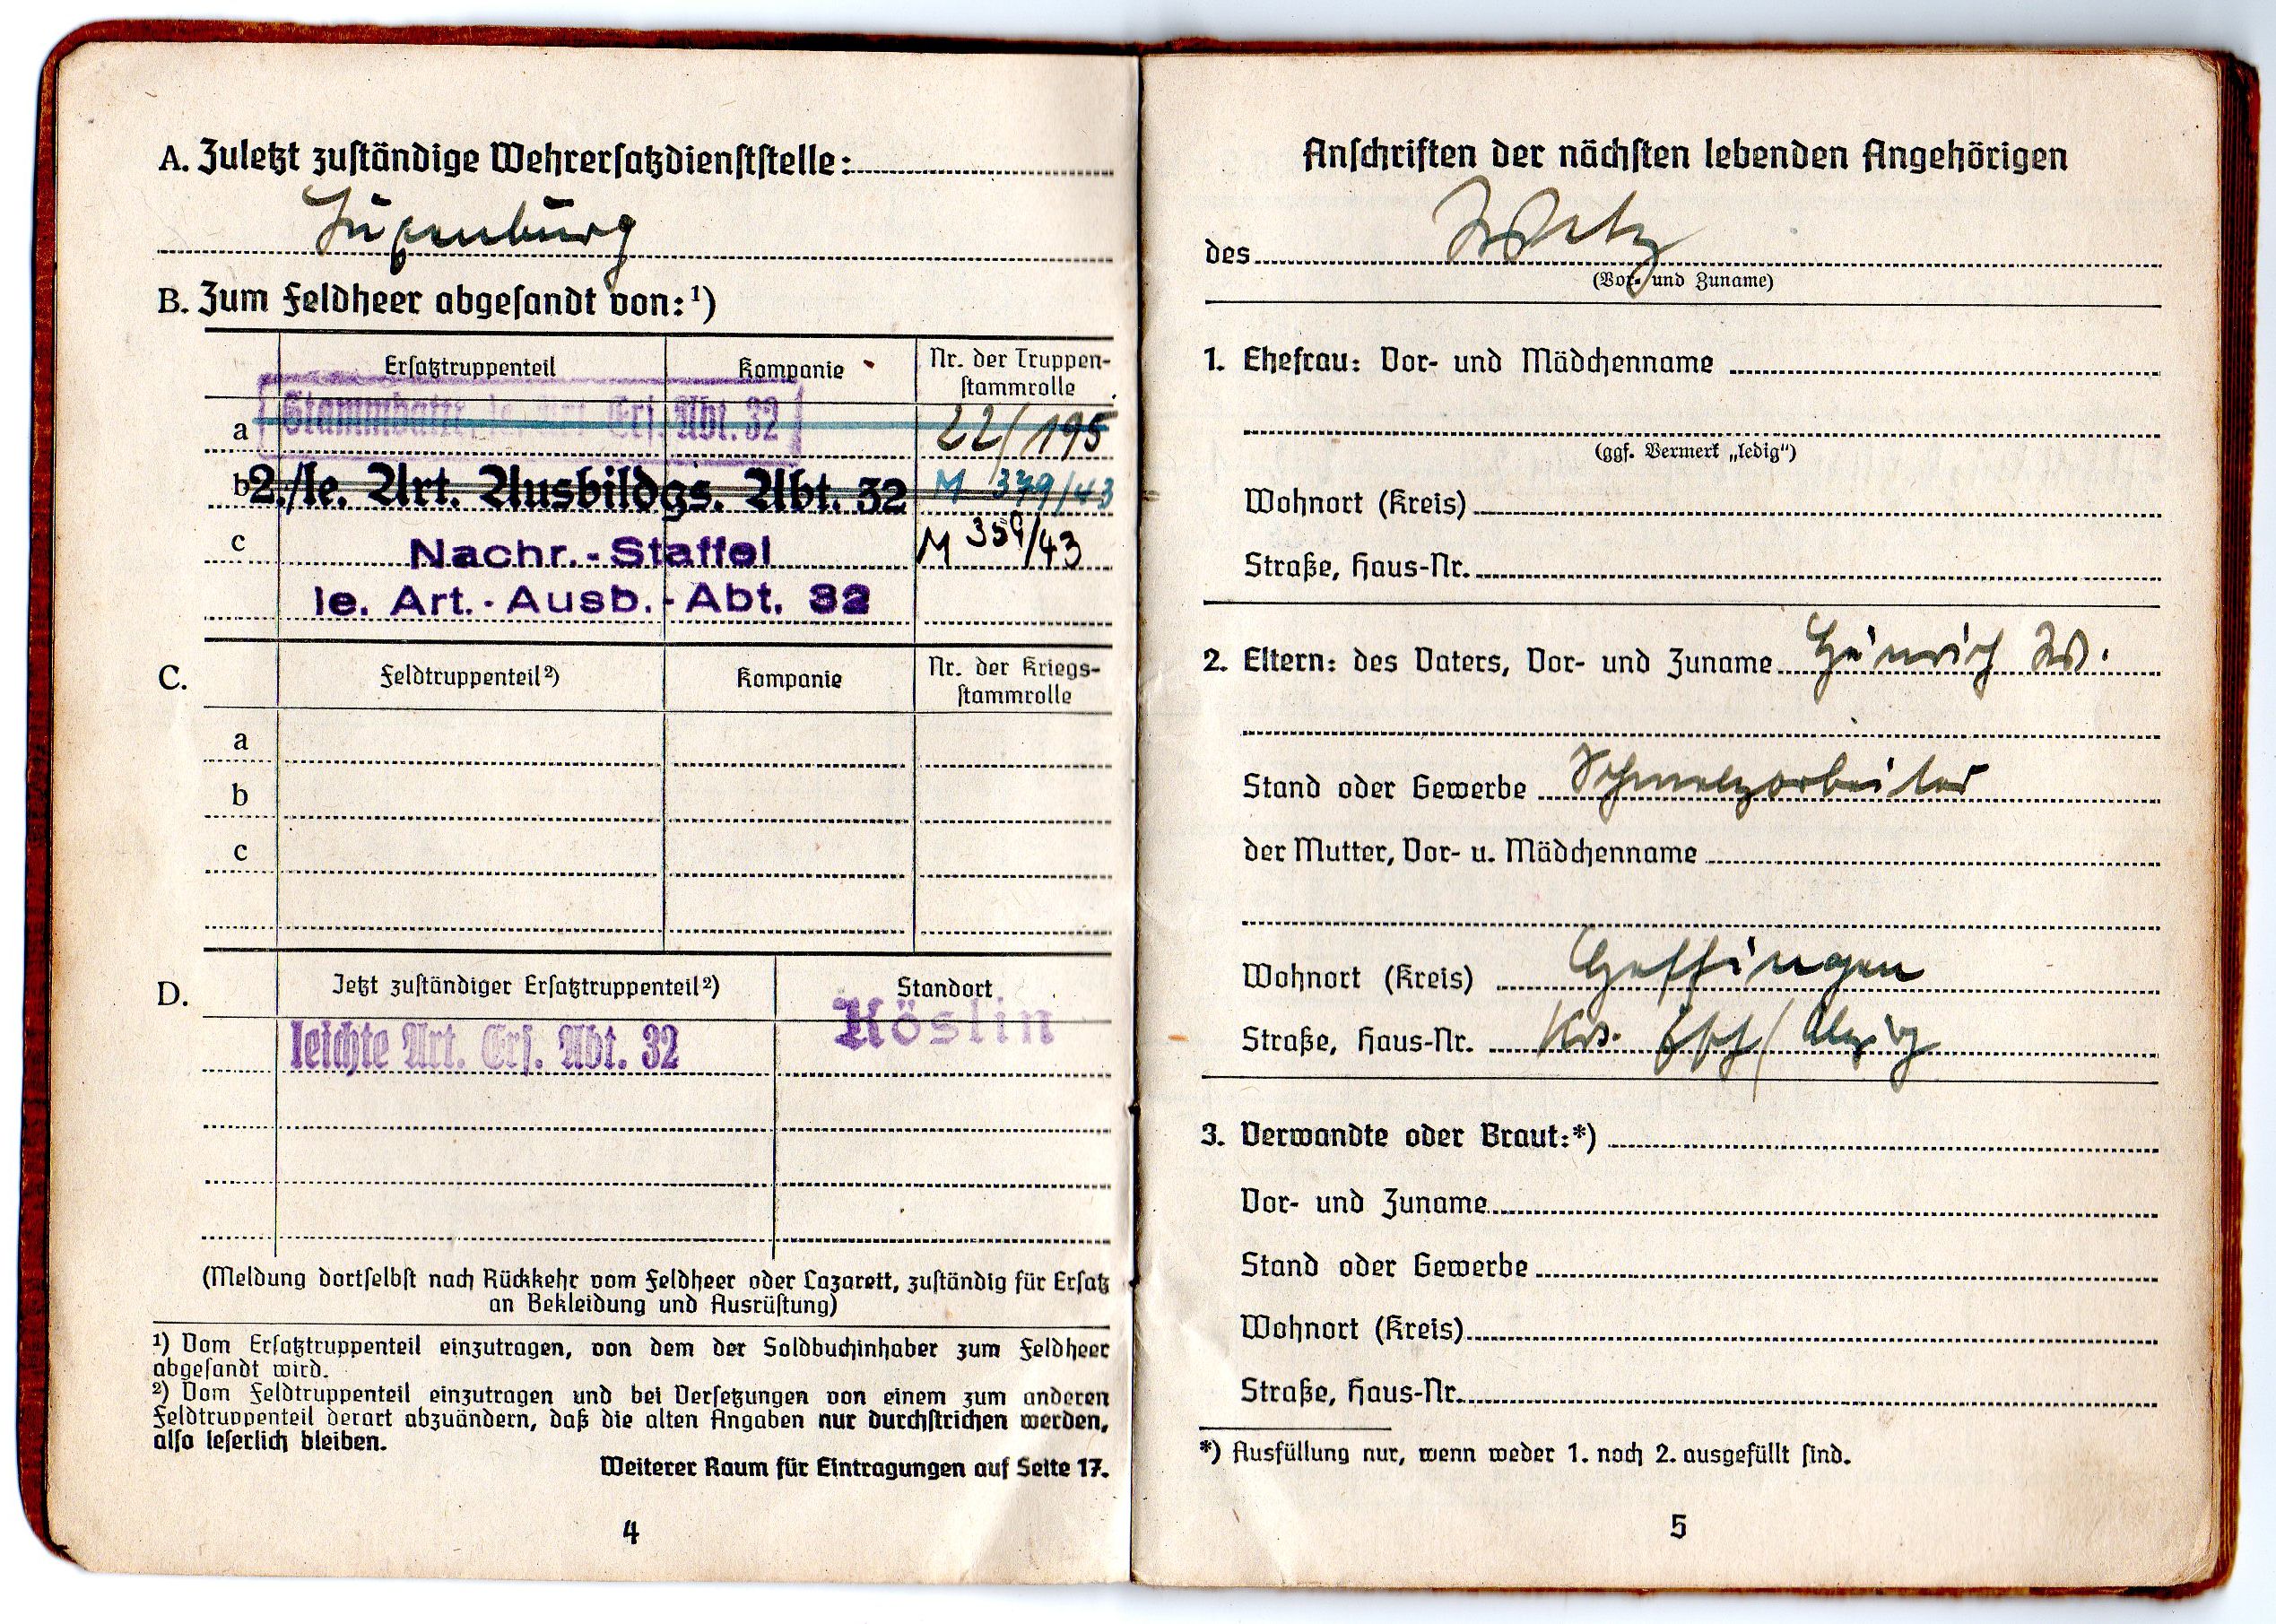 A. Zuletzt zuständige Wehrersatzdienststelle:
Luxemburg
B. Zum Feldheer abgesandt von:¹)
Ersatztruppenteil Kompanie Nr. der Truppen-
stammrolle
a Stammbattr. le. Art. Ers. Abt. 32 22/195
b 2./le. Art. Ausbildgs. Abt. 32 M 379/43
c Nachr.-Staffel M 359/43
le. Art.-Ausb.-Abt. 32
C. Feldtruppenteil²) Kompanie Nr. der Kriegs-
stammrolle
a
b
c
D. Jetzt zuständiger Ersatztruppenteil²) Standort
leichte Art. Ers. Abt. 32 Köslin
(Meldung dortselbst nach Rückkehr vom Feldheer oder Lazarett, zuständig für Ersatz
an Bekleidung und Ausrüstung)
¹) Vom Ersatztruppenteil einzutragen, von dem der Soldbuchinhaber zum Feldheer
abgesandt wird.
²) Vom Feldtruppenteil einzutragen und bei Versetzungen von einem zum anderen
Feldtruppenteil derart abzuändern, daß die alten Angaben nur durchstrichen werden,
also leserlich bleiben.
Weiterer Raum für Eintragungen auf Seite 17.
4
Anschriften der nächsten lebenden Angehörigen
des
(Vor- und Zuname)
1. Ehefrau: Vor- und Mädchenname
(ggf. Vermerk „ledig“)
Wohnort (Kreis)
Straße, Haus-Nr.
2. Eltern: des Vaters, Vor- und Zuname Heinrich W.
Stand oder Gewerbe Schmelzarbeiter
der Mutter, Vor- u. Mädchenname
Wohnort (Kreis)
Straße, Haus-Nr. Krs. Esch/Alzig
3. Verwandte oder Braut:*)
Vor- und Zuname
Stand oder Gewerbe
Wohnort (Kreis)
Straße, Haus-Nr.
*) Ausfüllung nur, wenn weder 1. noch 2. ausgefüllt sind.
5